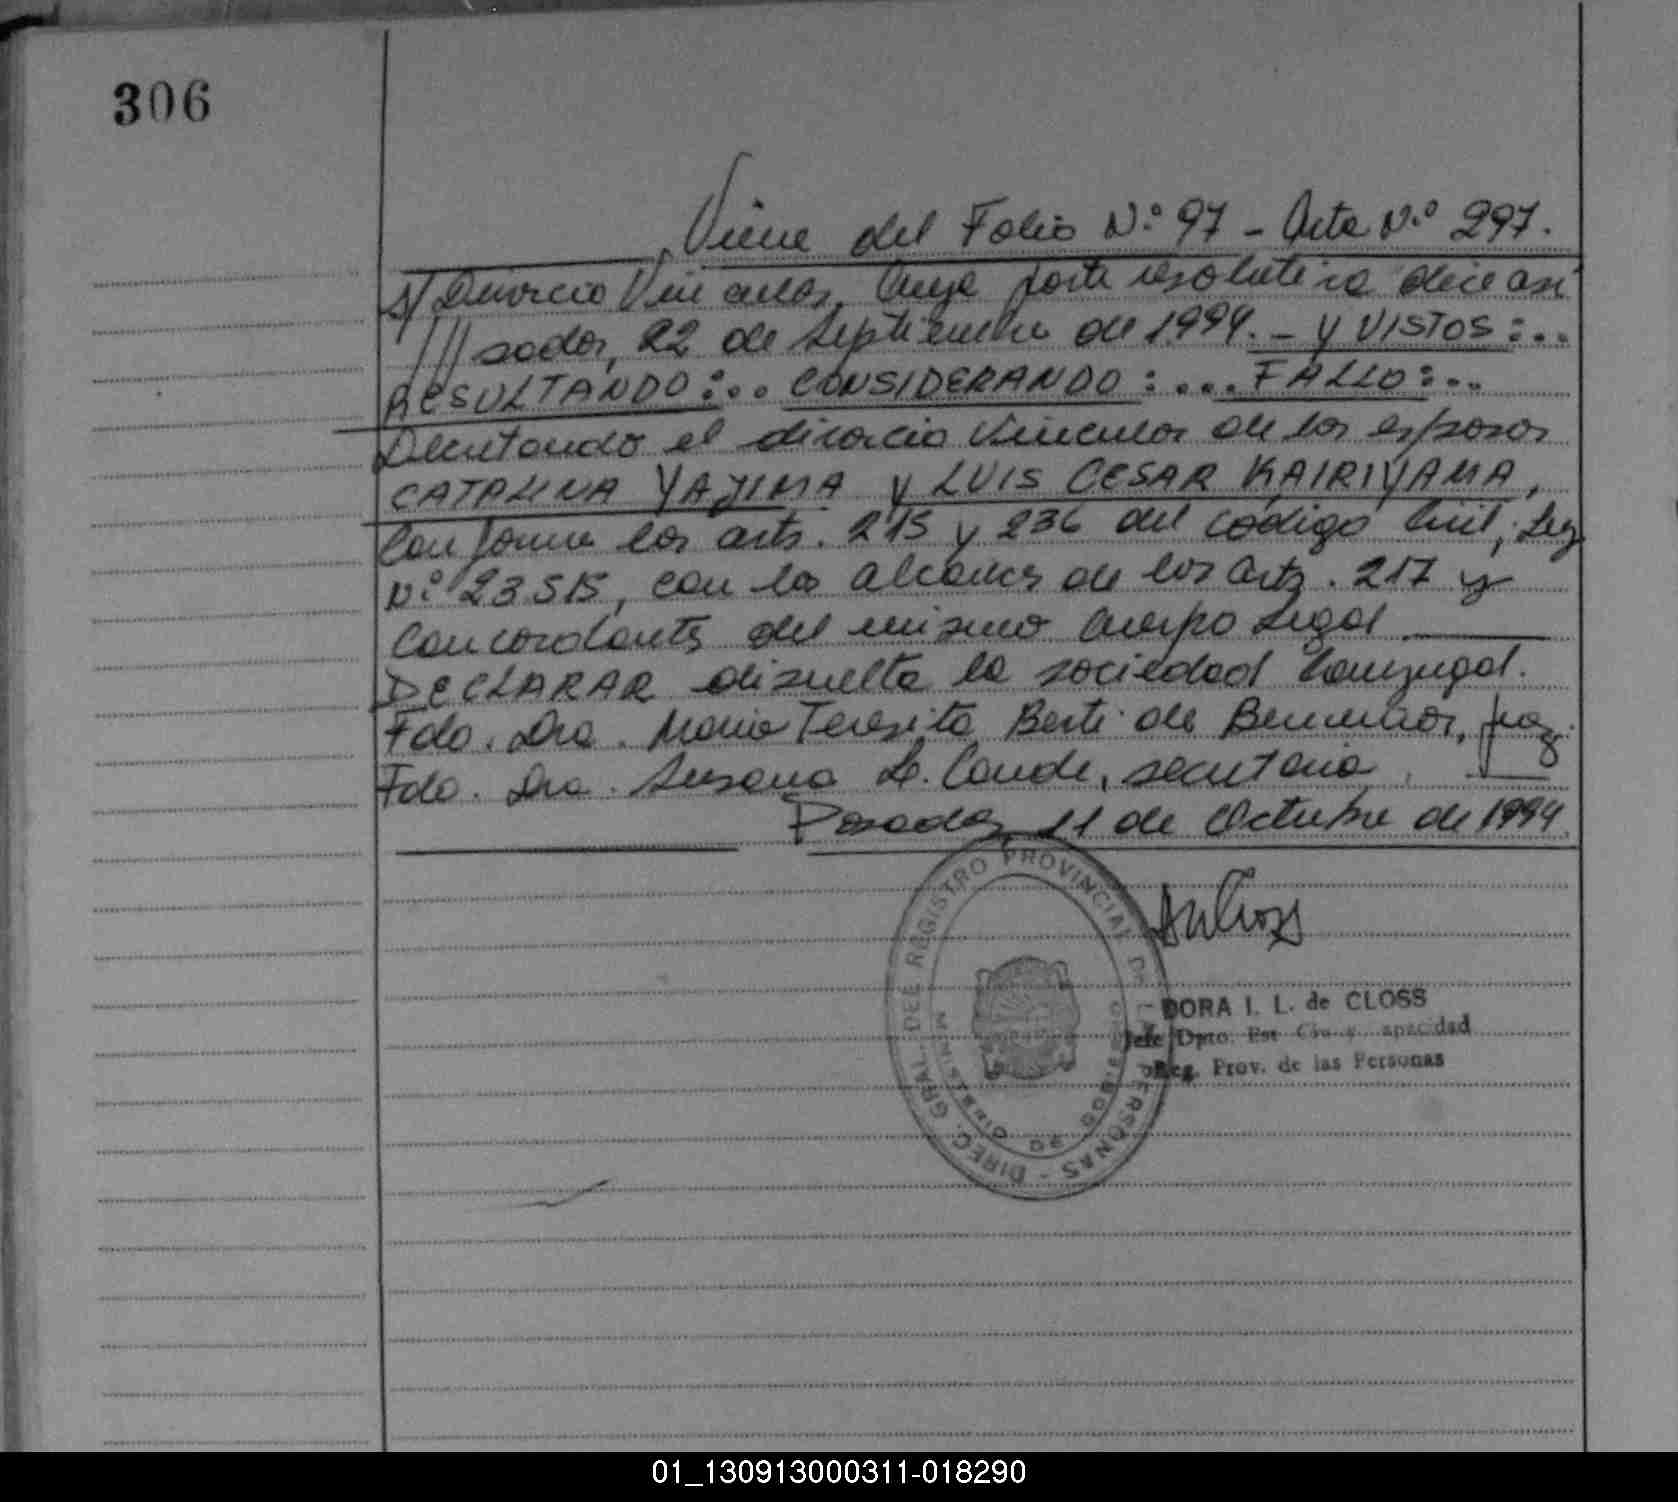 306
Viene del Folio N.º 97 - Acta N.º 297.
s/ Divorcio Vincular, Cuya parte resolutiva dice así
/// sadas, 22 de Septiembre de 1.994. - Y VISTOS:...
RESULTANDO:... CONSIDERANDO:.... FALLO:...
Decretando el divorcio Vincular de los esposos
CATALINA YAJIMA y LUIS CESAR KAIRIYAMA,
Conforme los arts. 215 y 236 del código Civil, Ley
N.º 23.515, con los alcances de los arts. 217 y
Concordantes del mismo Cuerpo Legal
DECLARAR disuelta la sociedad Conyugal.
Fdo. Dra. Maria Teresita Berti de, Juez
Fdo. Dra. Susana L. Conde, secretaria.
Posadas, 11 de Octubre de 1994.
DIREC. GRAL. DEL REGISTRO PROVINCIAL DE LAS PERSONAS
MINISTERIO DE GOBIERNO
DORA I. L. de CLOSS
Jefe Dpto. Est. Civ. y Capacidad
Reg. Prov. de las Personas
01_130913000311-018290